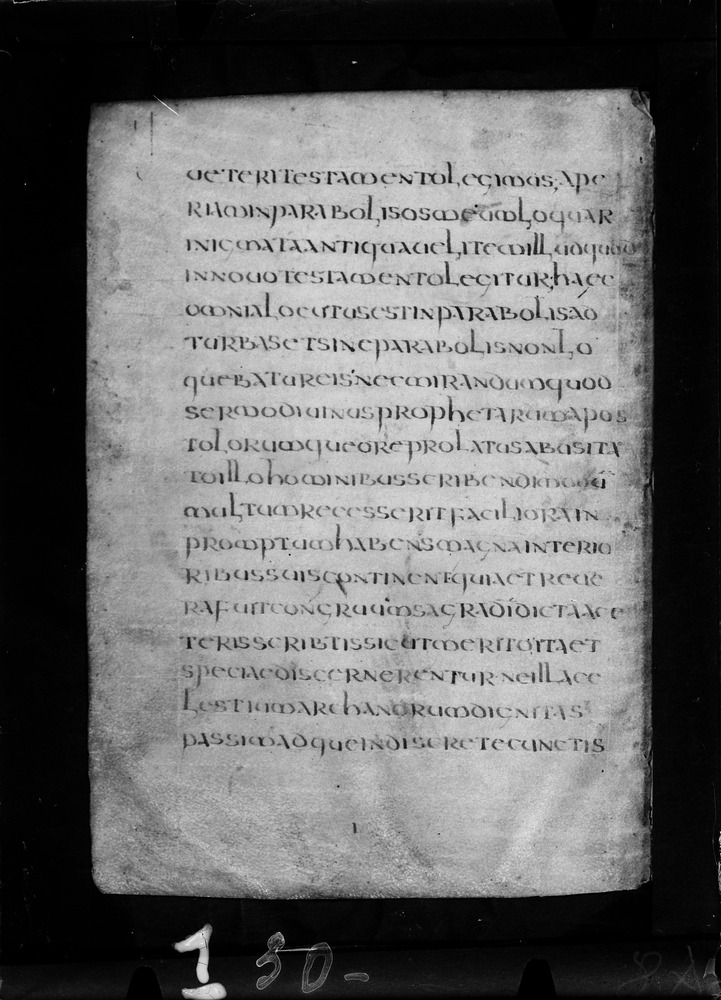 ueteritestamentolegimus;ape
riaminparabolisosmeumloquar
inicmataantiquauelitemilludquod
innouotestamentolegitur;haec
omnialocutusestinparabolisad
turbasetsineparabolisnonlo
quebatureis'necmirandumquod
sermodiuinusprophetarumapos
tolorumqueoreprolatusabusita
toillohominibusscribendimodu
multumrecesseritfaciliorain
promptumhabensmagnainterio
ribussuiscontinentquiaetreue
rafuitcongruumsacradidictaace
terisscribtissicutmeritoitaet
speciaediscernerenturneillace
lestiumarchanorumdignitas
passimadqueindiscretecunctis
I
I 30-